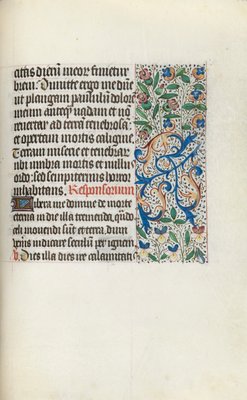 citas dierū meor finietur
brevi. Dimitte ergo me dñe
ut plangam paululū dolorē
meum anteq̄ vadam et non
revertar ad terrā tenebrosā
et opertam mortis caligine
Terram miserie et tenebrar̄
ubi umbra mortis et null9
ordo: sed sempiternus horror
inhabitans. Responsorium
Libera me domine de morte
eterna in die illa tremenda, quādo
celi movendi sunt et terra, dum
iudicare seculum per ignem
V. Dies illa dies ire calamitatis